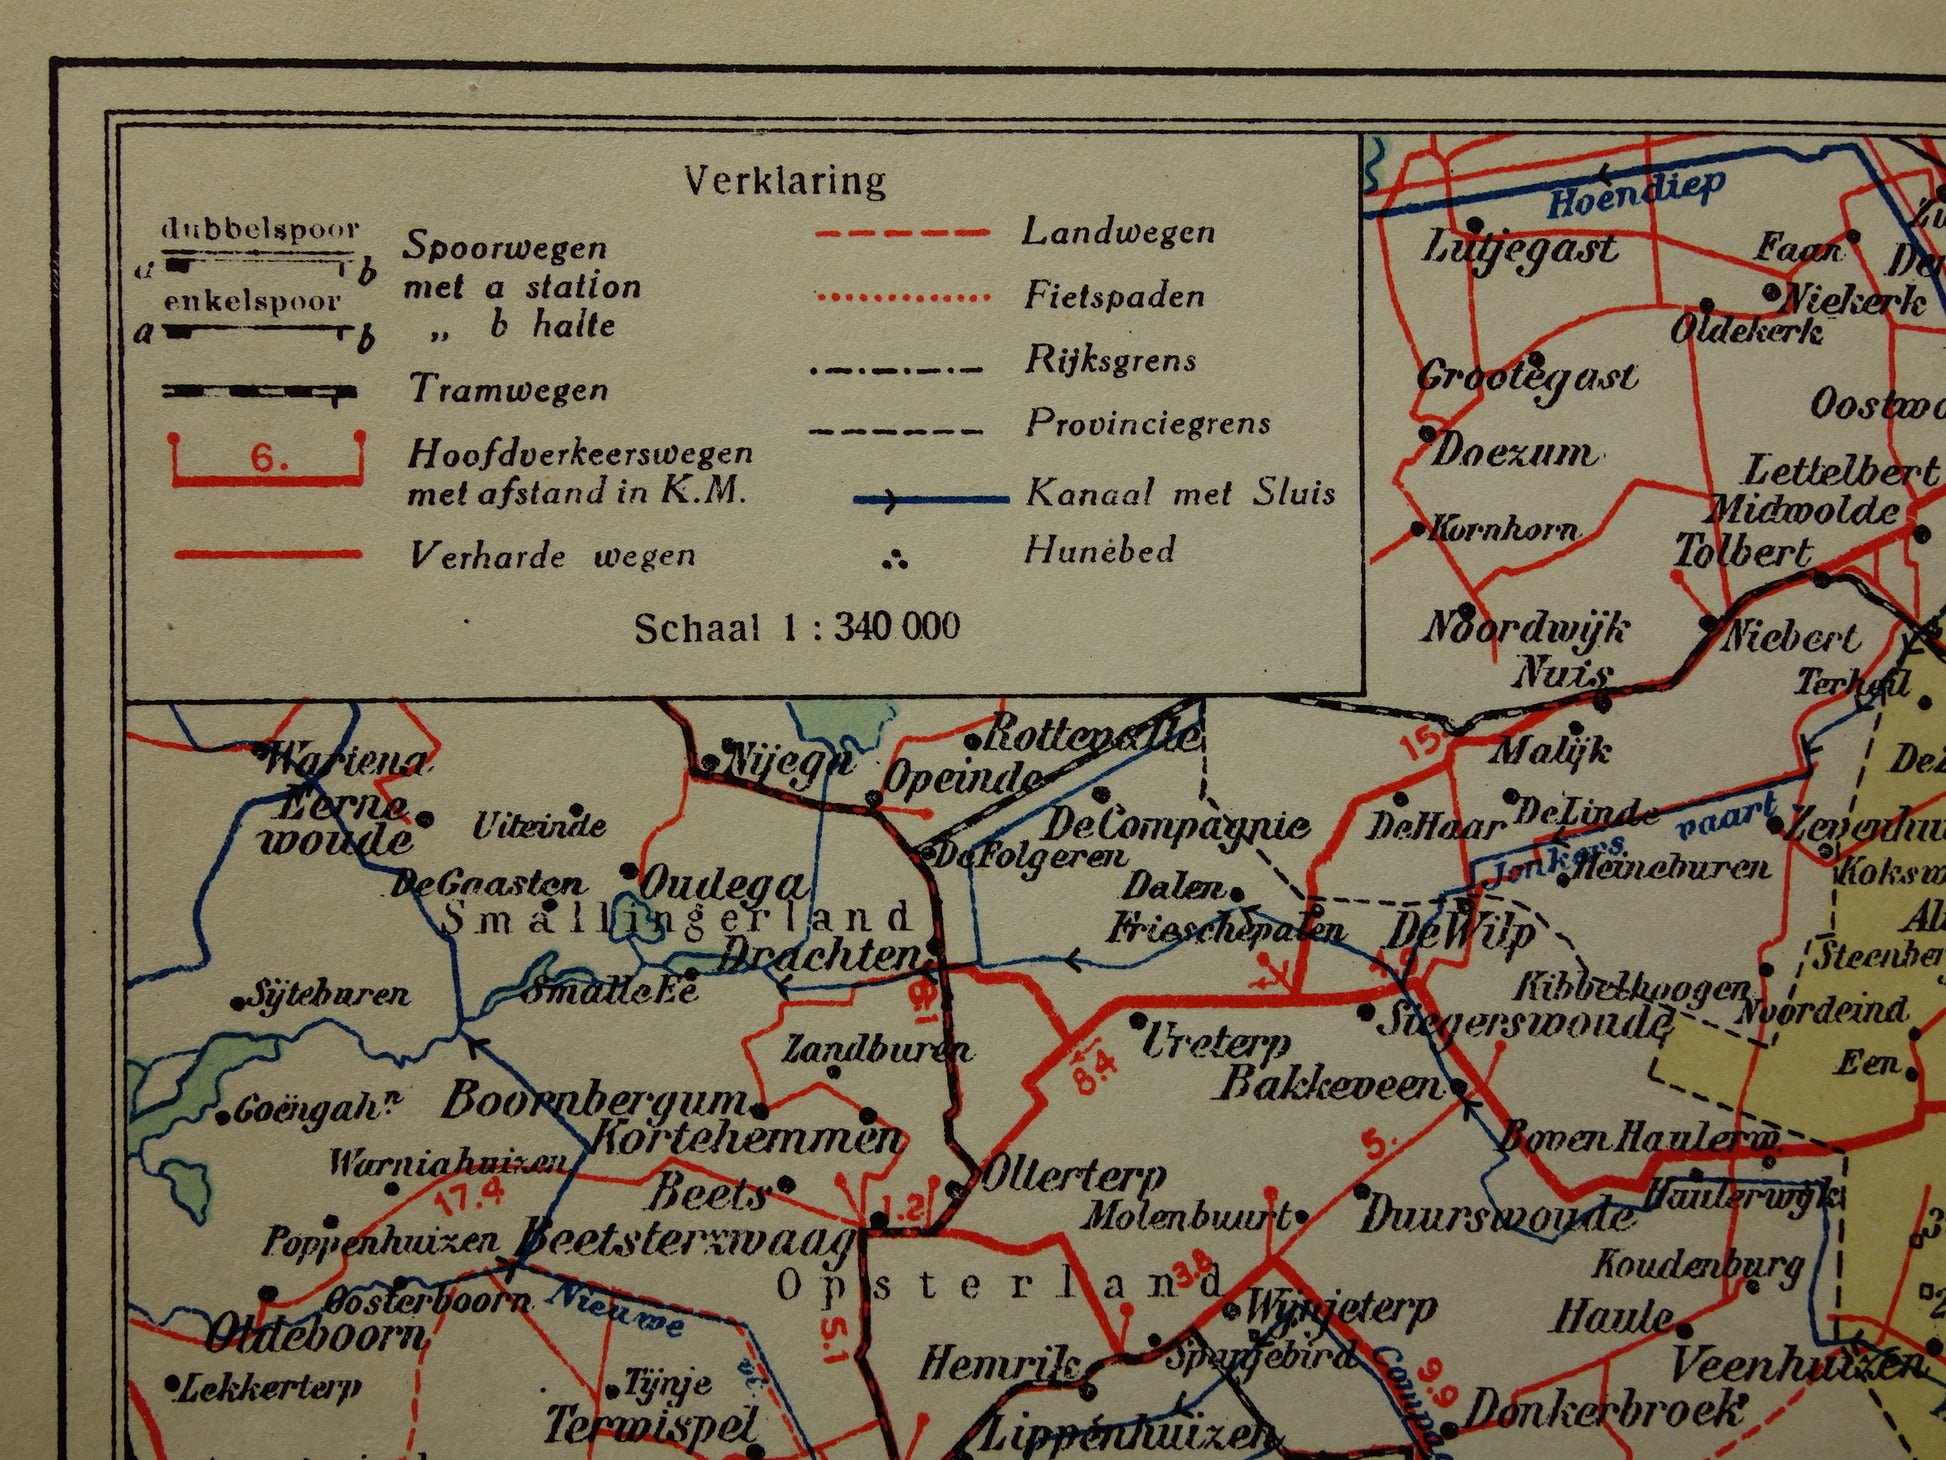 Verklaring
dubbelspoor
a b
enkelspoor
a b
Spoorwegen
met a station
„ b halte
Tramwegen
6.
Hoofdverkeerswegen
met afstand in K.M.
Verharde wegen
Landwegen
Fietspaden
Rijksgrens
Provinciegrens
Kanaal met Sluis
Hunebed
Schaal 1 : 340 000
Hoendiep
Lutjegast
Faan
Niekerk
Oldekerk
Grootegast
Doezum
Lettelbert
Midwolde
Kornhorn
Tolbert
Noordwijk
Niebert
Nuis
Terheil
15.
Malijk
Rottevalle
Nijega
Opeinde
Wartena
Eerne
woude
Uiteinde
De Compagnie
De Haar
De Linde
Jonkers vaart
De Folgeren
Heineburen
De Gaasten
Oudega
Dalen
Smallingerland
Frieschepalen
De Wilp
Drachten
Smalle Ee
Sijteburen
Kibbelhoogen
Noordeind
Siegerswoude
Ureterp
8.4
Zandburen
Een
Bakkeveen
Goëngahn
Boornbergum
Kortehemmen
Boven Haulerw.
5.
Warniahuizen
Olterterp
Beets
17.4
1.2
Haulerwijk
Molenbuurt
Duurswoude
Poppenhuizen
Beetsterzwaag
Koudenburg
Opsterland
3.8
Oosterboorn
Nieuwe
Wijnjeterp
Haule
Oldeboorn
5.1
Hemrik
Spanjebird
Veenhuizen
Lekkerterp
Tijnje
9.9
Donkerbroek
Terwispel
Lippenhuizen